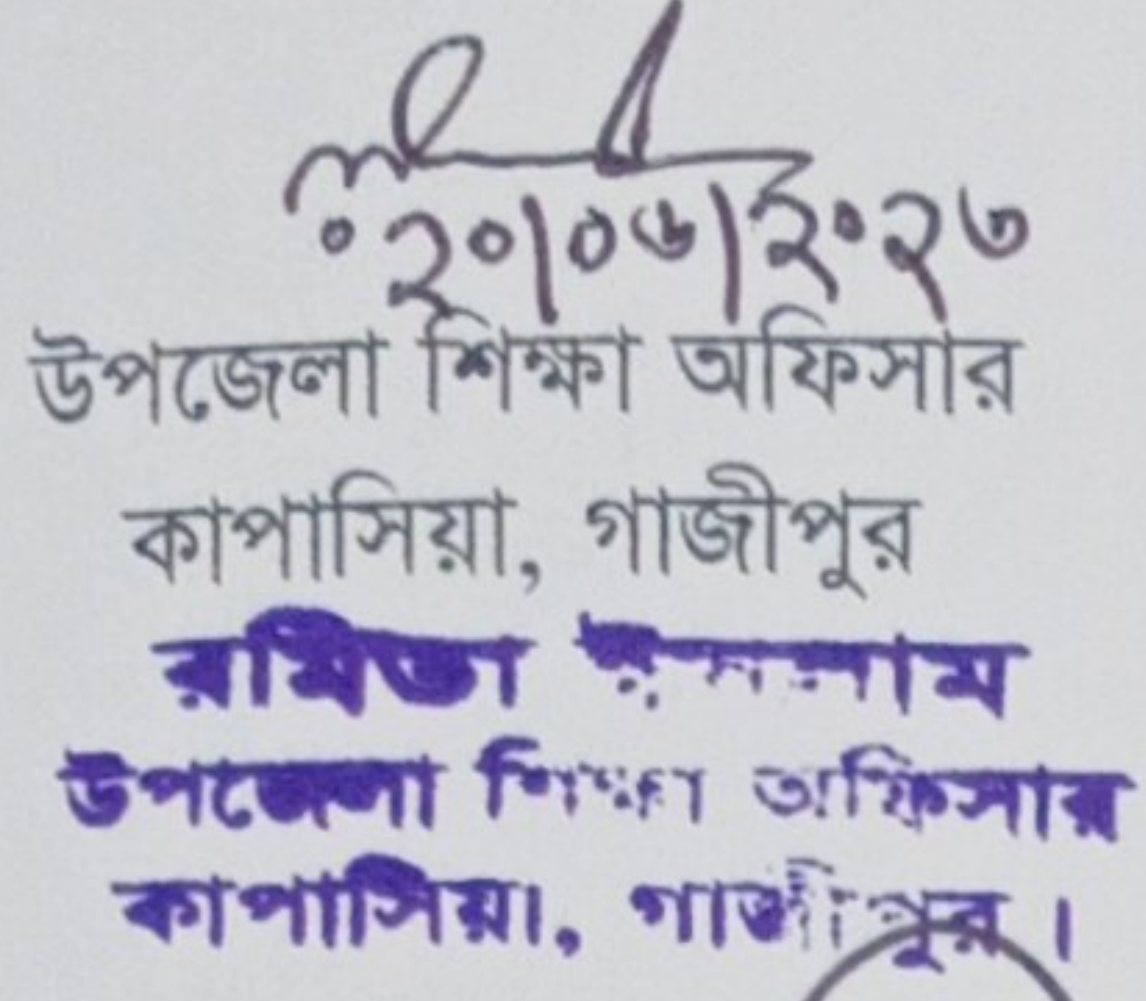 ২০|০৬|২০২৩
উপজেলা শিক্ষা অফিসার
কাপাসিয়া, গাজীপুর
রমিতা ইসলাম
উপজেলা শিক্ষা অফিসার
কাপাসিয়া, গাজীপুর।